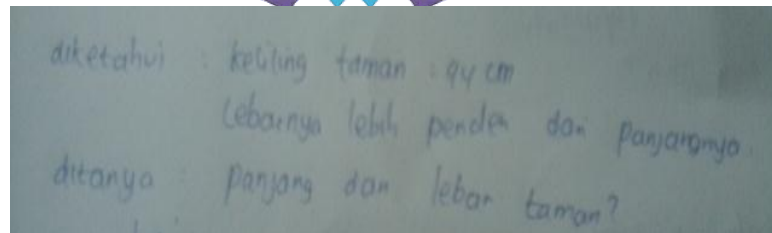 diketahui : keliling taman : 94 cm
Lebarnya lebih pendek dari panjangnya.
ditanya : panjang dan lebar taman?